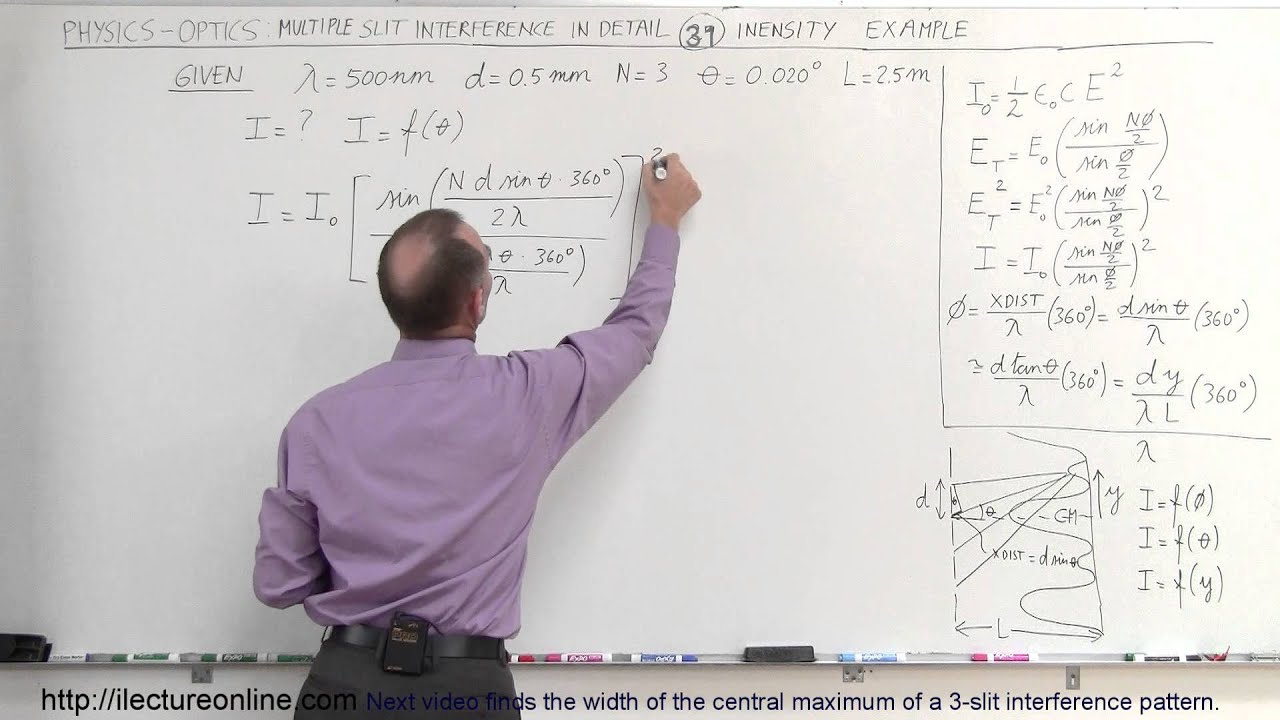 PHYSICS-OPTICS: MULTIPLE SLIT INTERFERENCE IN DETAIL 39 INENSITY EXAMPLE
GIVEN λ=500nm d=0.5mm N=3 θ=0.020° L=2.5m
I=? I=f(θ)
I=I₀ [ sin (N d sin θ · 360° / 2λ) / θ · 360°) / λ ]²
I₀=1/2 ϵ₀ C E²
E_T=E₀ (sin Nø/2 / sin ø/2)
E_T²=E₀² (sin Nø/2 / sin ø/2)²
I=I₀ (sin Nø/2 / sin ø/2)²
ø= XDIST/λ (360°)= d sin θ/λ (360°)
≅ d tan θ/λ (360°)= d y/λ L (360°)
λ
d θ CM y
XDIST=d sin θ
L
I=f(ø)
I=f(θ)
I=f(y)
EXPO EXPO EXPO EXPO EXPO EXPO
http://ilectureonline.com Next video finds the width of the central maximum of a 3-slit interference pattern.